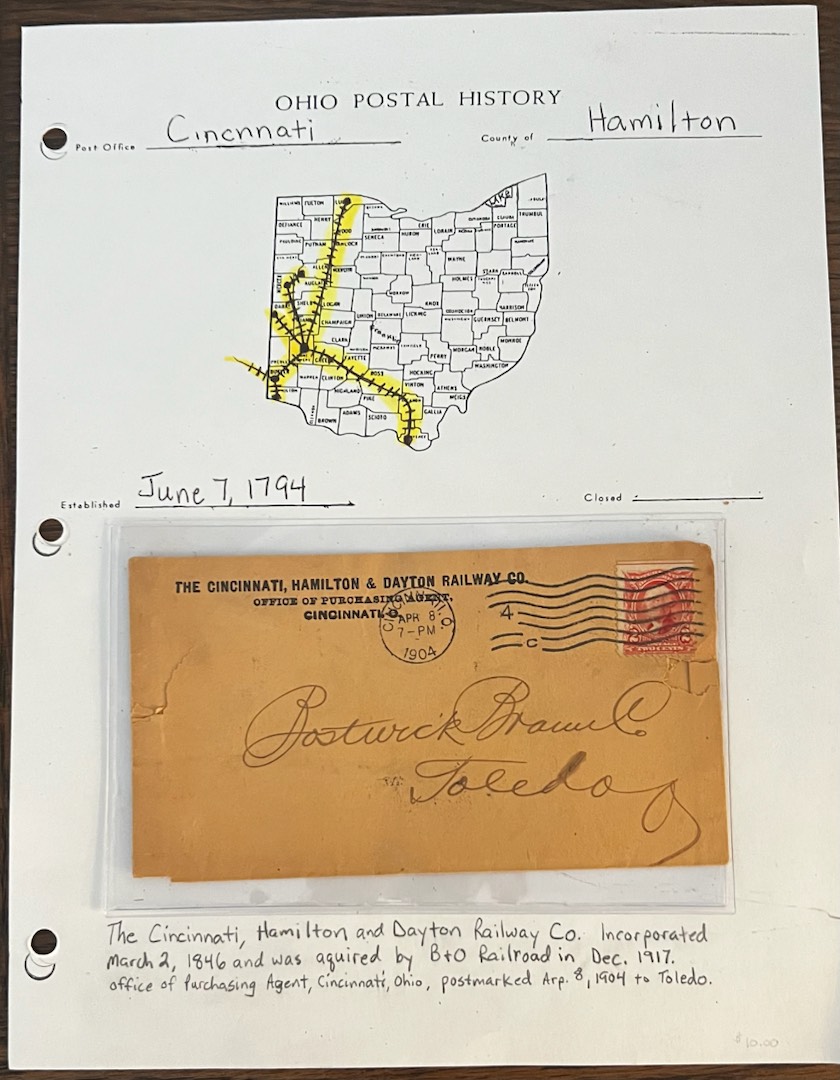 OHIO POSTAL HISTORY
Post Office Cincnnati County of Hamilton
WILLIAMS FULTON LUCAS
DEFIANCE HENRY WOOD
SENECA HURON ERIE LORAIN PORTAGE TRUMBUL
PAULDING PUTNAM HANCOCK
WAYNE STARK
ALLEN
AUGLAI
HOLMES
MERCER
MORROW
KNOX
SHELBY LOGAN
UNION DELAWARE LICKING COSHOCTON HARRISON
DARKE CHAMPAIGN GUERNSEY BELMONT
CLARK Franklin
MONROE
PERRY MORGAN NOBLE
PREBLE GREENE FAYETTE WASHINGTON
HOCKING
BUTLER WARREN CLINTON ROSS
VINTON ATHENS
HIGHLAND PIKE MEIGS
BROWN ADAMS SCIOTO GALLIA
Established June 7, 1794 Closed
THE CINCINNATI, HAMILTON & DAYTON RAILWAY CO.
OFFICE OF PURCHASING AGENT,
CINCINNATI, O.
CINCINNATI, O.
APR 8
7-PM
1904
4
C
2 2
TWO CENTS
Bostwick Braun Co
Toledo
O
The Cincinnati, Hamilton and Dayton Railway Co. Incorporated
March 2, 1846 and was aquired by B+O Railroad in Dec. 1917.
office of Purchasing Agent, Cincinnati, Ohio, postmarked Arp. 8, 1904 to Toledo.
$10.00